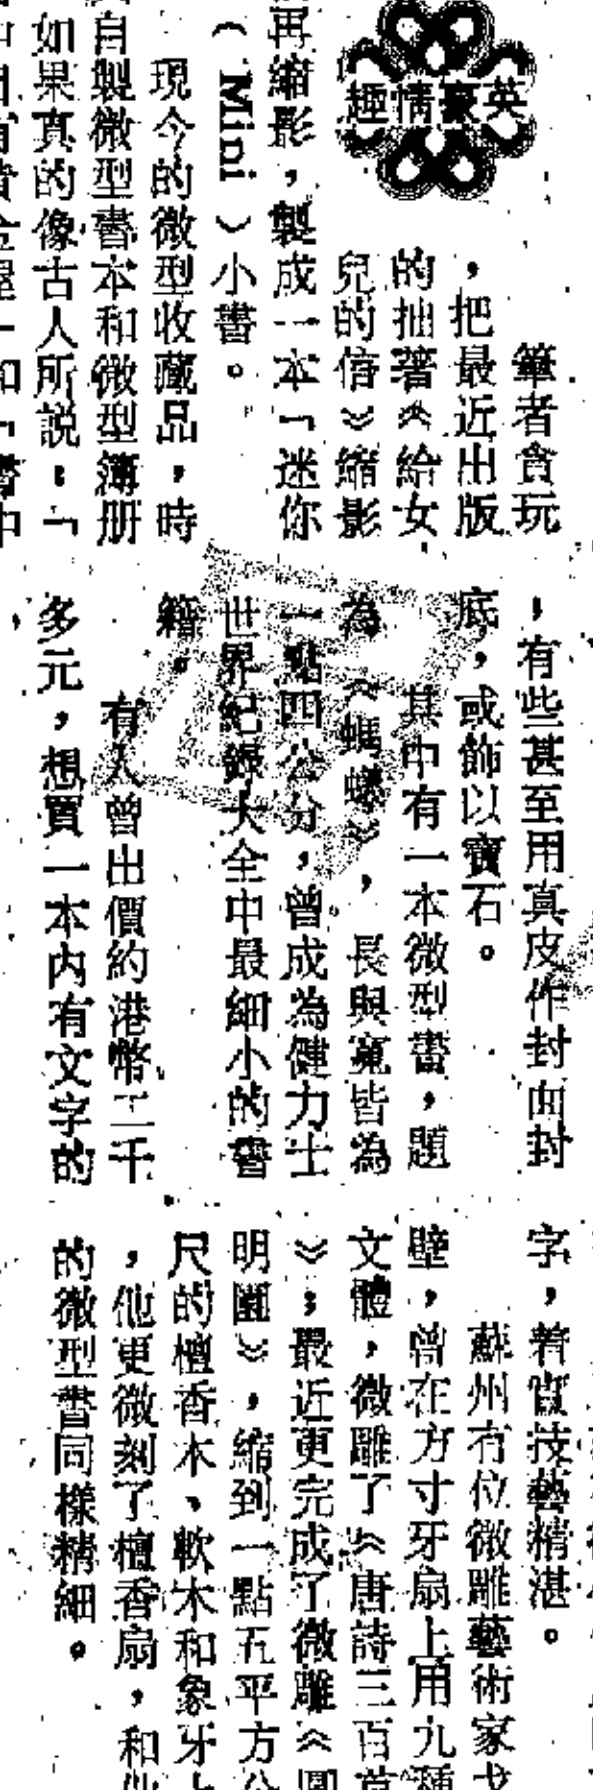 英豪情趣
筆者貪玩
，把最近出版
的拙著《給女
兒的信》縮影
再縮影，製成一本「迷你
（Mini）小書。
現今的微型收藏品，時
自製微型書本和微型簿册
如果真的像古人所說：「
，有些甚至用真皮作封面封
底，或飾以寶石。
其中有一本微型書，題
為《螞蟻》，長與寬皆為
一點四公分，曾成為健力士
世界紀錄大全中最細小的書
籍。
有人曾出價約港幣二千
多元，想買一本內有文字的
字，着實技藝精湛。
蘇州有位微雕藝術家
壁，曾在方寸牙扇上用九種
文體，微雕了《唐詩三百首
》；最近更完成了微雕《圓
明園》，縮到一點五平方公
尺的檀香木、軟木和象牙上
，他更微刻了檀香扇，和
的微型書同樣精細。